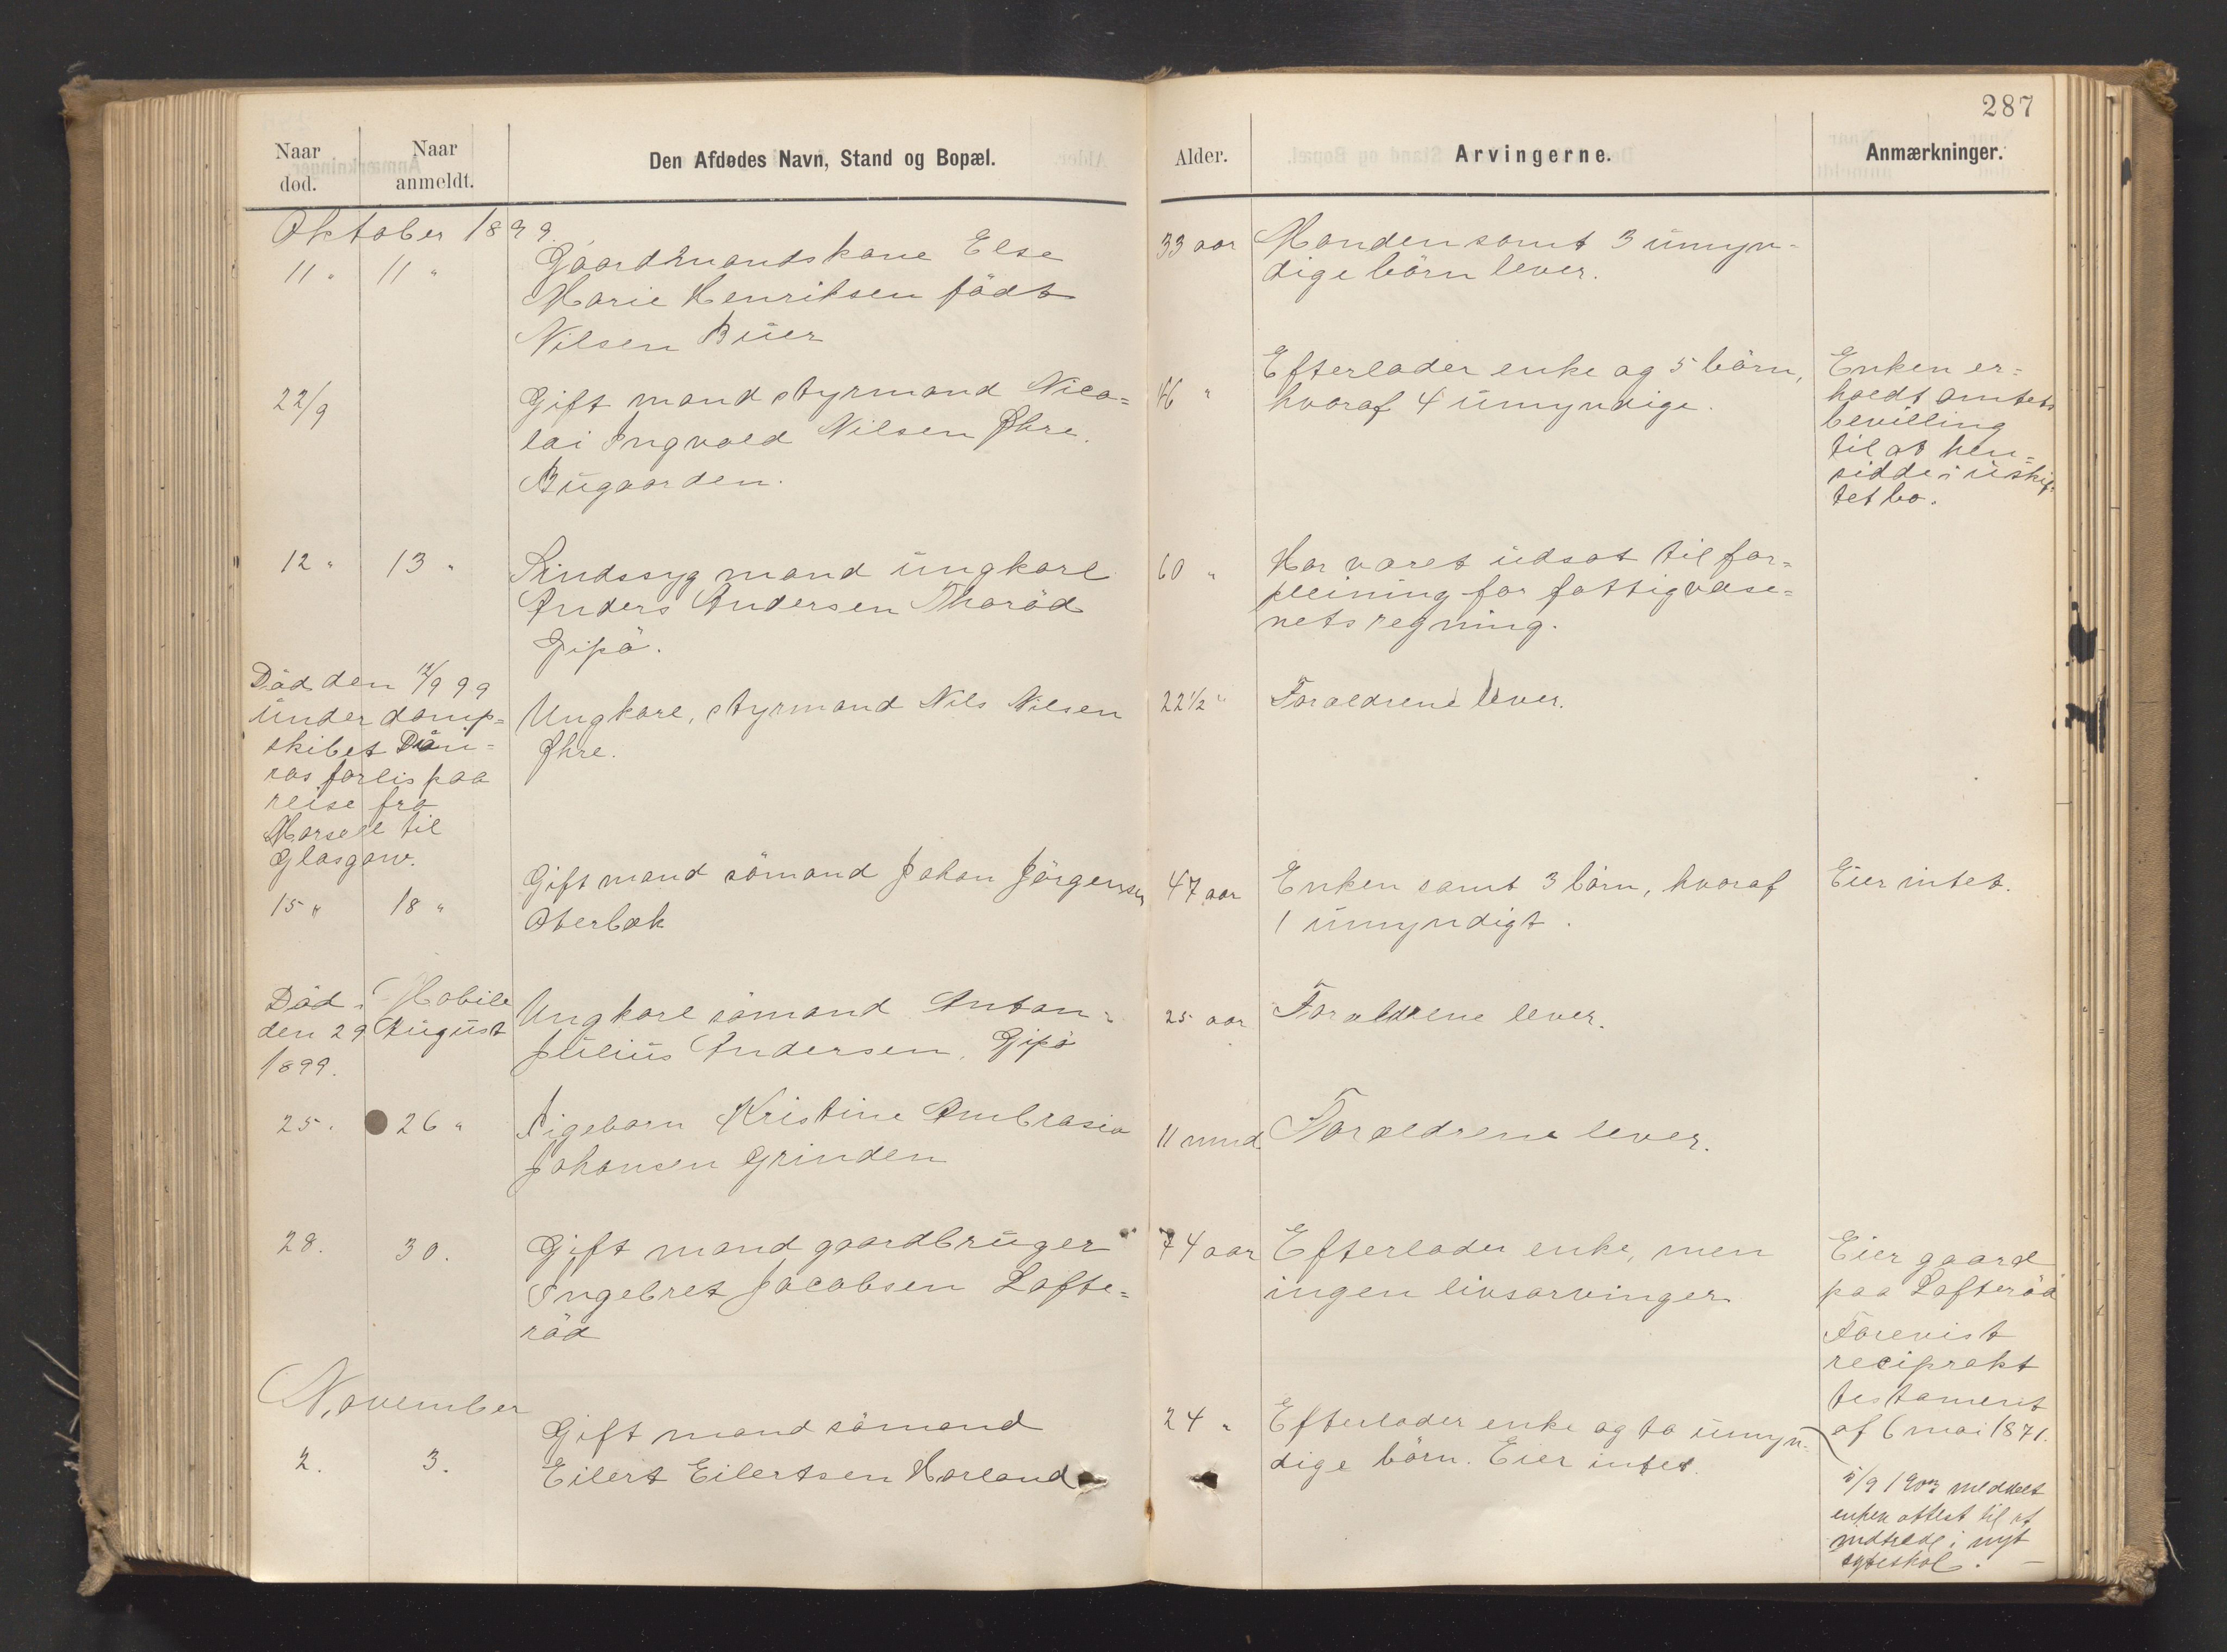 287
Naar død.
Naar anmeldt.
Den Afdødes Navn, Stand og Bopæl.
Alder.
Arvingerne.
Anmærkninger.
Oktober 1899
11 " 11 "
Gaardmandskone Else
Marie Henriksen født
Nilsen Buer
33 aar
Manden samt 3 umyn=
dige børn lever.
22/9
Gift mand styrmand Nico=
lai Ingvald Nilsen Øhre.
Bugaarden.
46 "
Efterlader enke og 5 børn,
hvoraf 4 umyndige.
Enken er=
holdt amtets
bevilling
til at hen=
sidde i uskif=
tet bo.
12 " 13 "
Sindssyg mand ungkarl
Anders Andersen Thorød
Gipø.
60 "
Har været udsat til for=
pleining for fattigvæse=
nets regning.
Død den 12/9 99
under damp=
skibet
ros forlis paa
reise fra
Marsell til
Glasgow.
Ungkarl, styrmand Nils Nilsen
Øhre.
22 1/2 "
Forældrene lever.
15 " 18 "
Gift mand sømand Johan Jørgensen
Oterbæk
47 aar
Enken samt 3 børn, hvoraf
1 umyndigt.
Eier intet.
Død i Mobile
den 29 August
1899.
Ungkarl sømand Anton=
Julius Andersen, Gipø
25 aar
Forældrene lever.
25. 26 "
Pigebarn Kristine Ambrosia
Johansen Grinden
11 mnd
Forældrene lever.
28. 30.
Gift mand gaardbruger
Ingebret Jacobsen Lofte=
rød
74 aar
Efterlader enke, men
ingen livsarvinger
Eier gaard
paa Lofterød
Forevist
reciprokt
testament
af 6 mai 1871.
November
2. 3.
Gift mand sømand
Eilert Eilertsen Horland
24 "
Efterlader enke og to umyn=
dige børn. Eier intet.
5/9 1903 meddelt
enken attest til at
indtræde i nyt
egteskab.